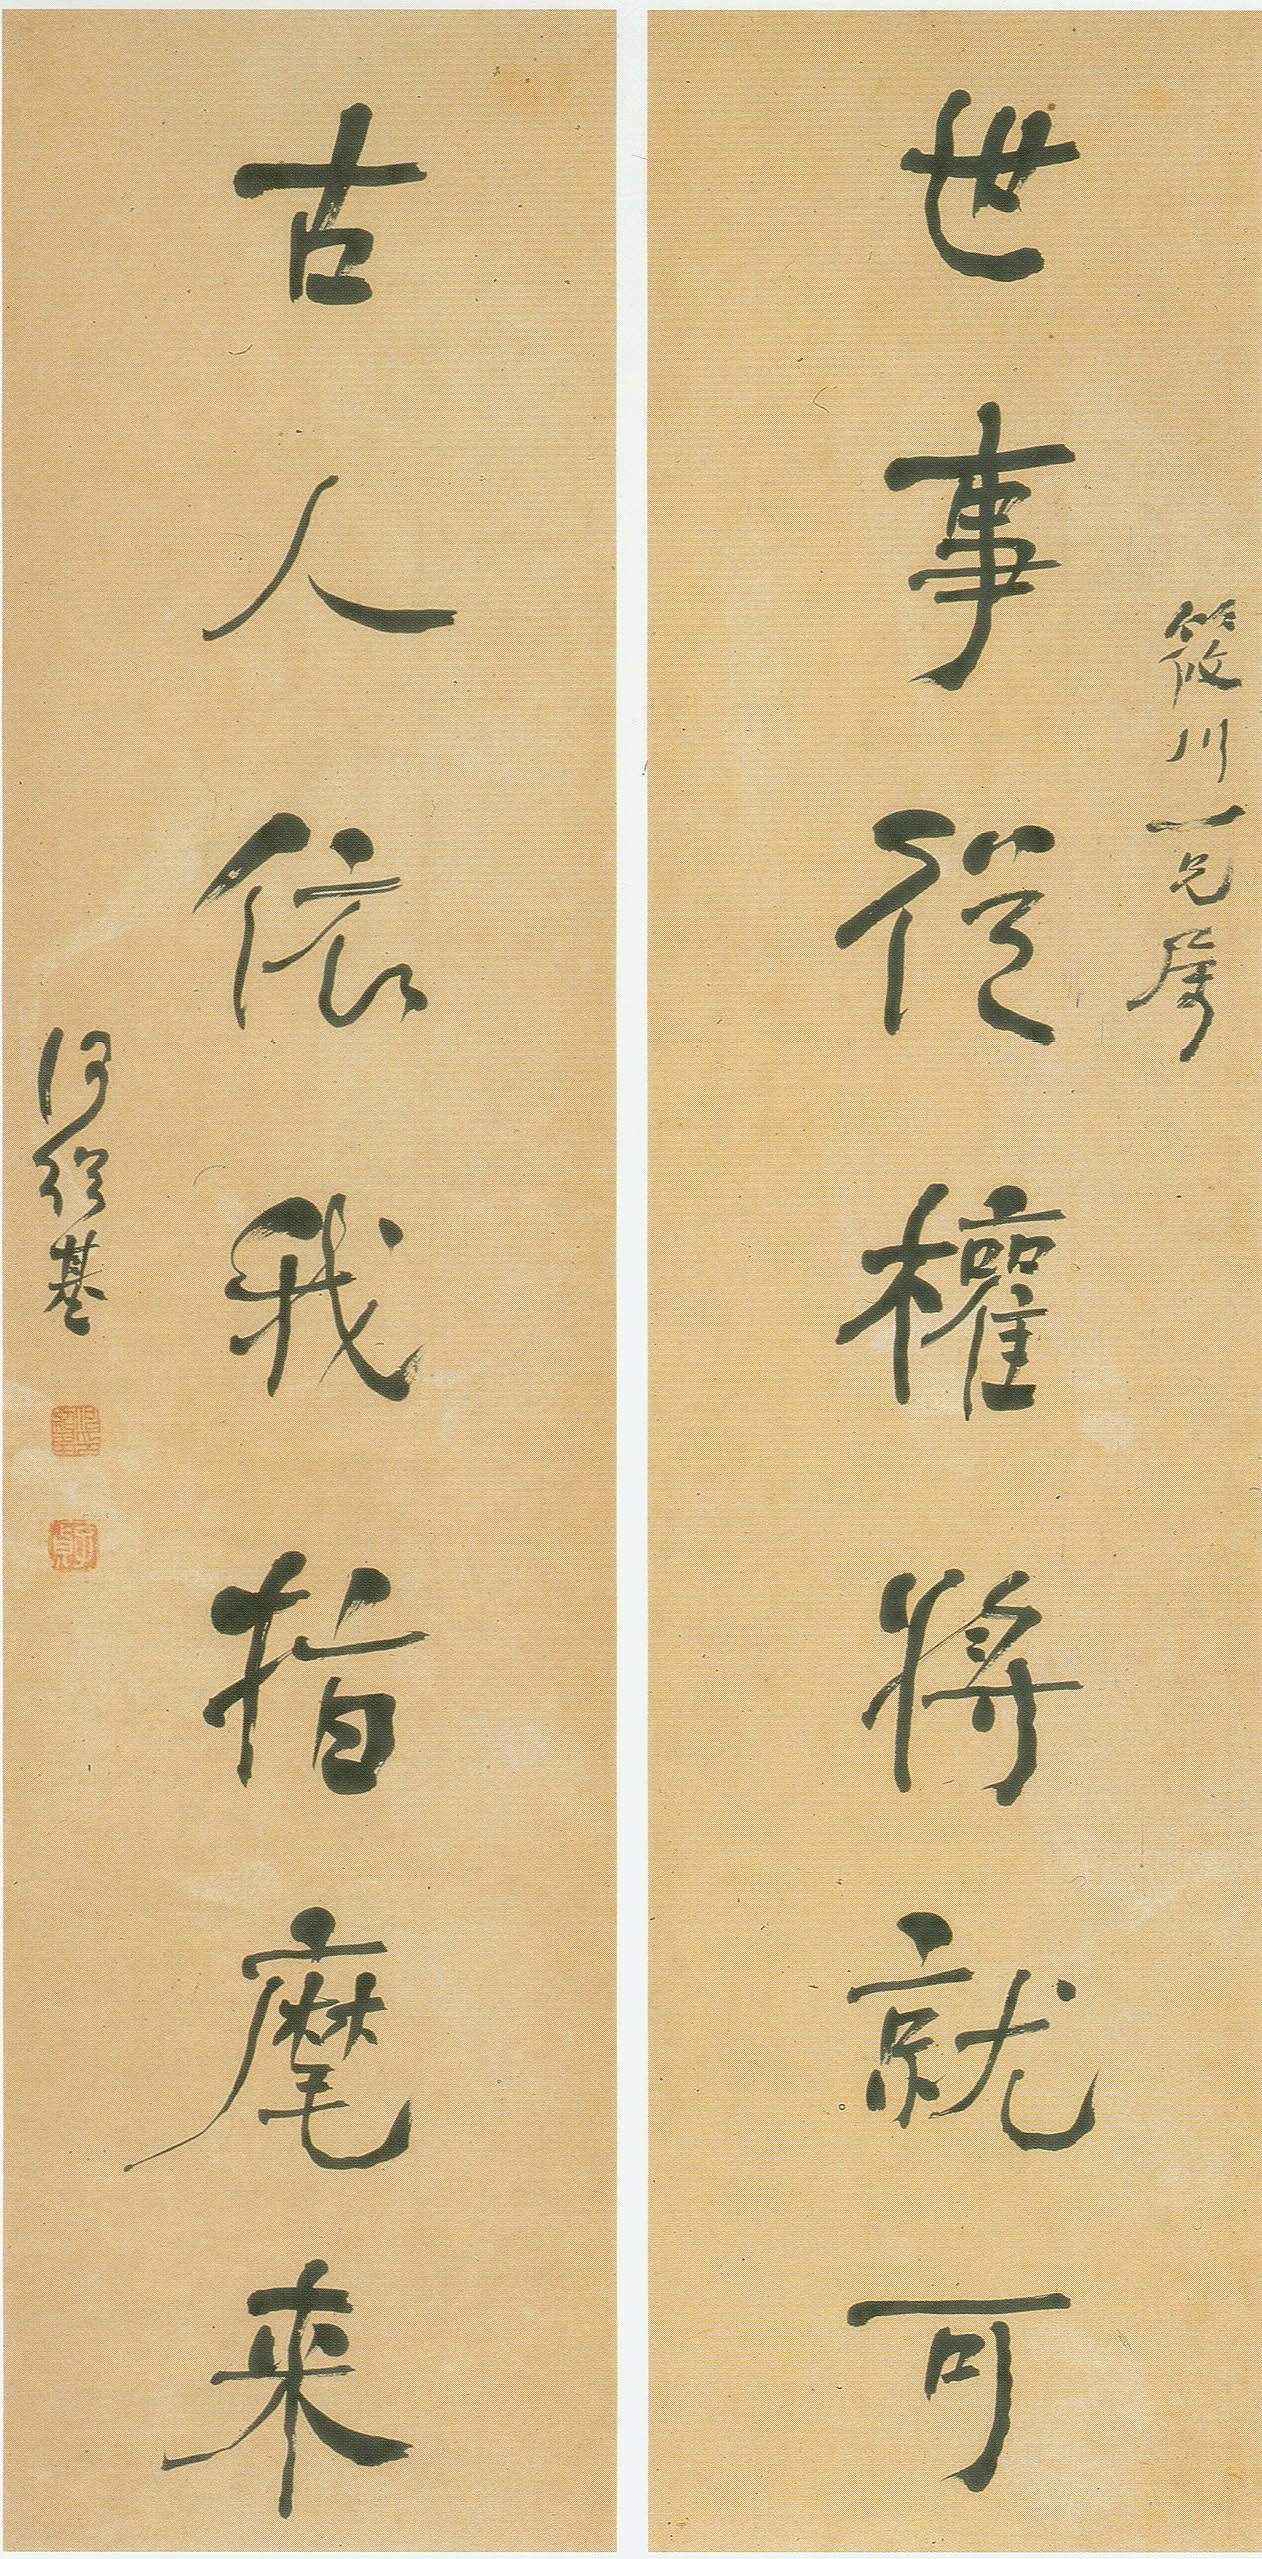 世事從權將就可
筱川一兄屬
古人依我指麾來
何紹基
子貞